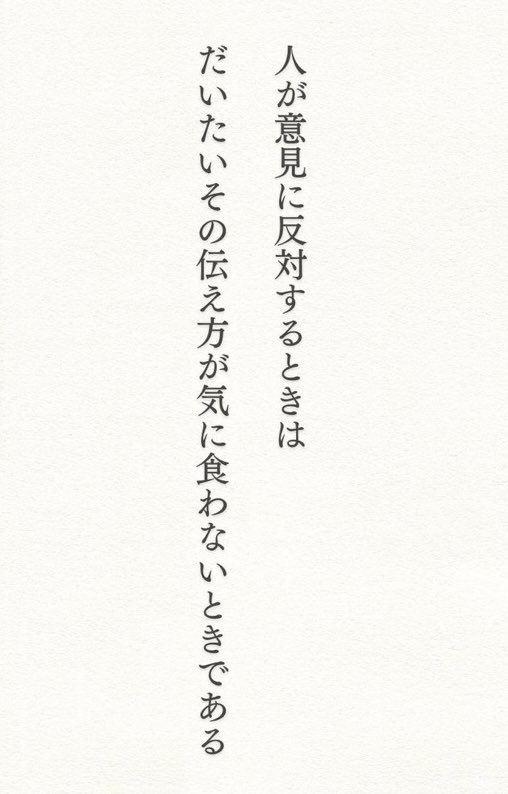 人が意見に反対するときは
だいたいその伝え方が気に食わないときである